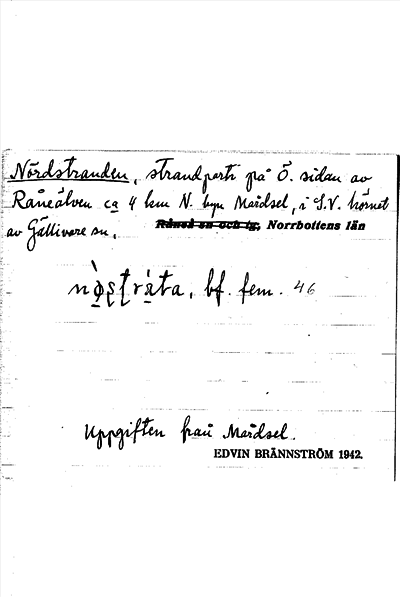 Nördstranden, strandparti på Ö. sidan av
Råneälven ca 4 km N. byn Mårdsel, i S.V. hörnet
av Gällivare sn.
Råneå sn och tg, Norrbottens län
bf. fem. 46
Uppgiften från Mårdsel.
EDVIN BRÄNNSTRÖM 1942.